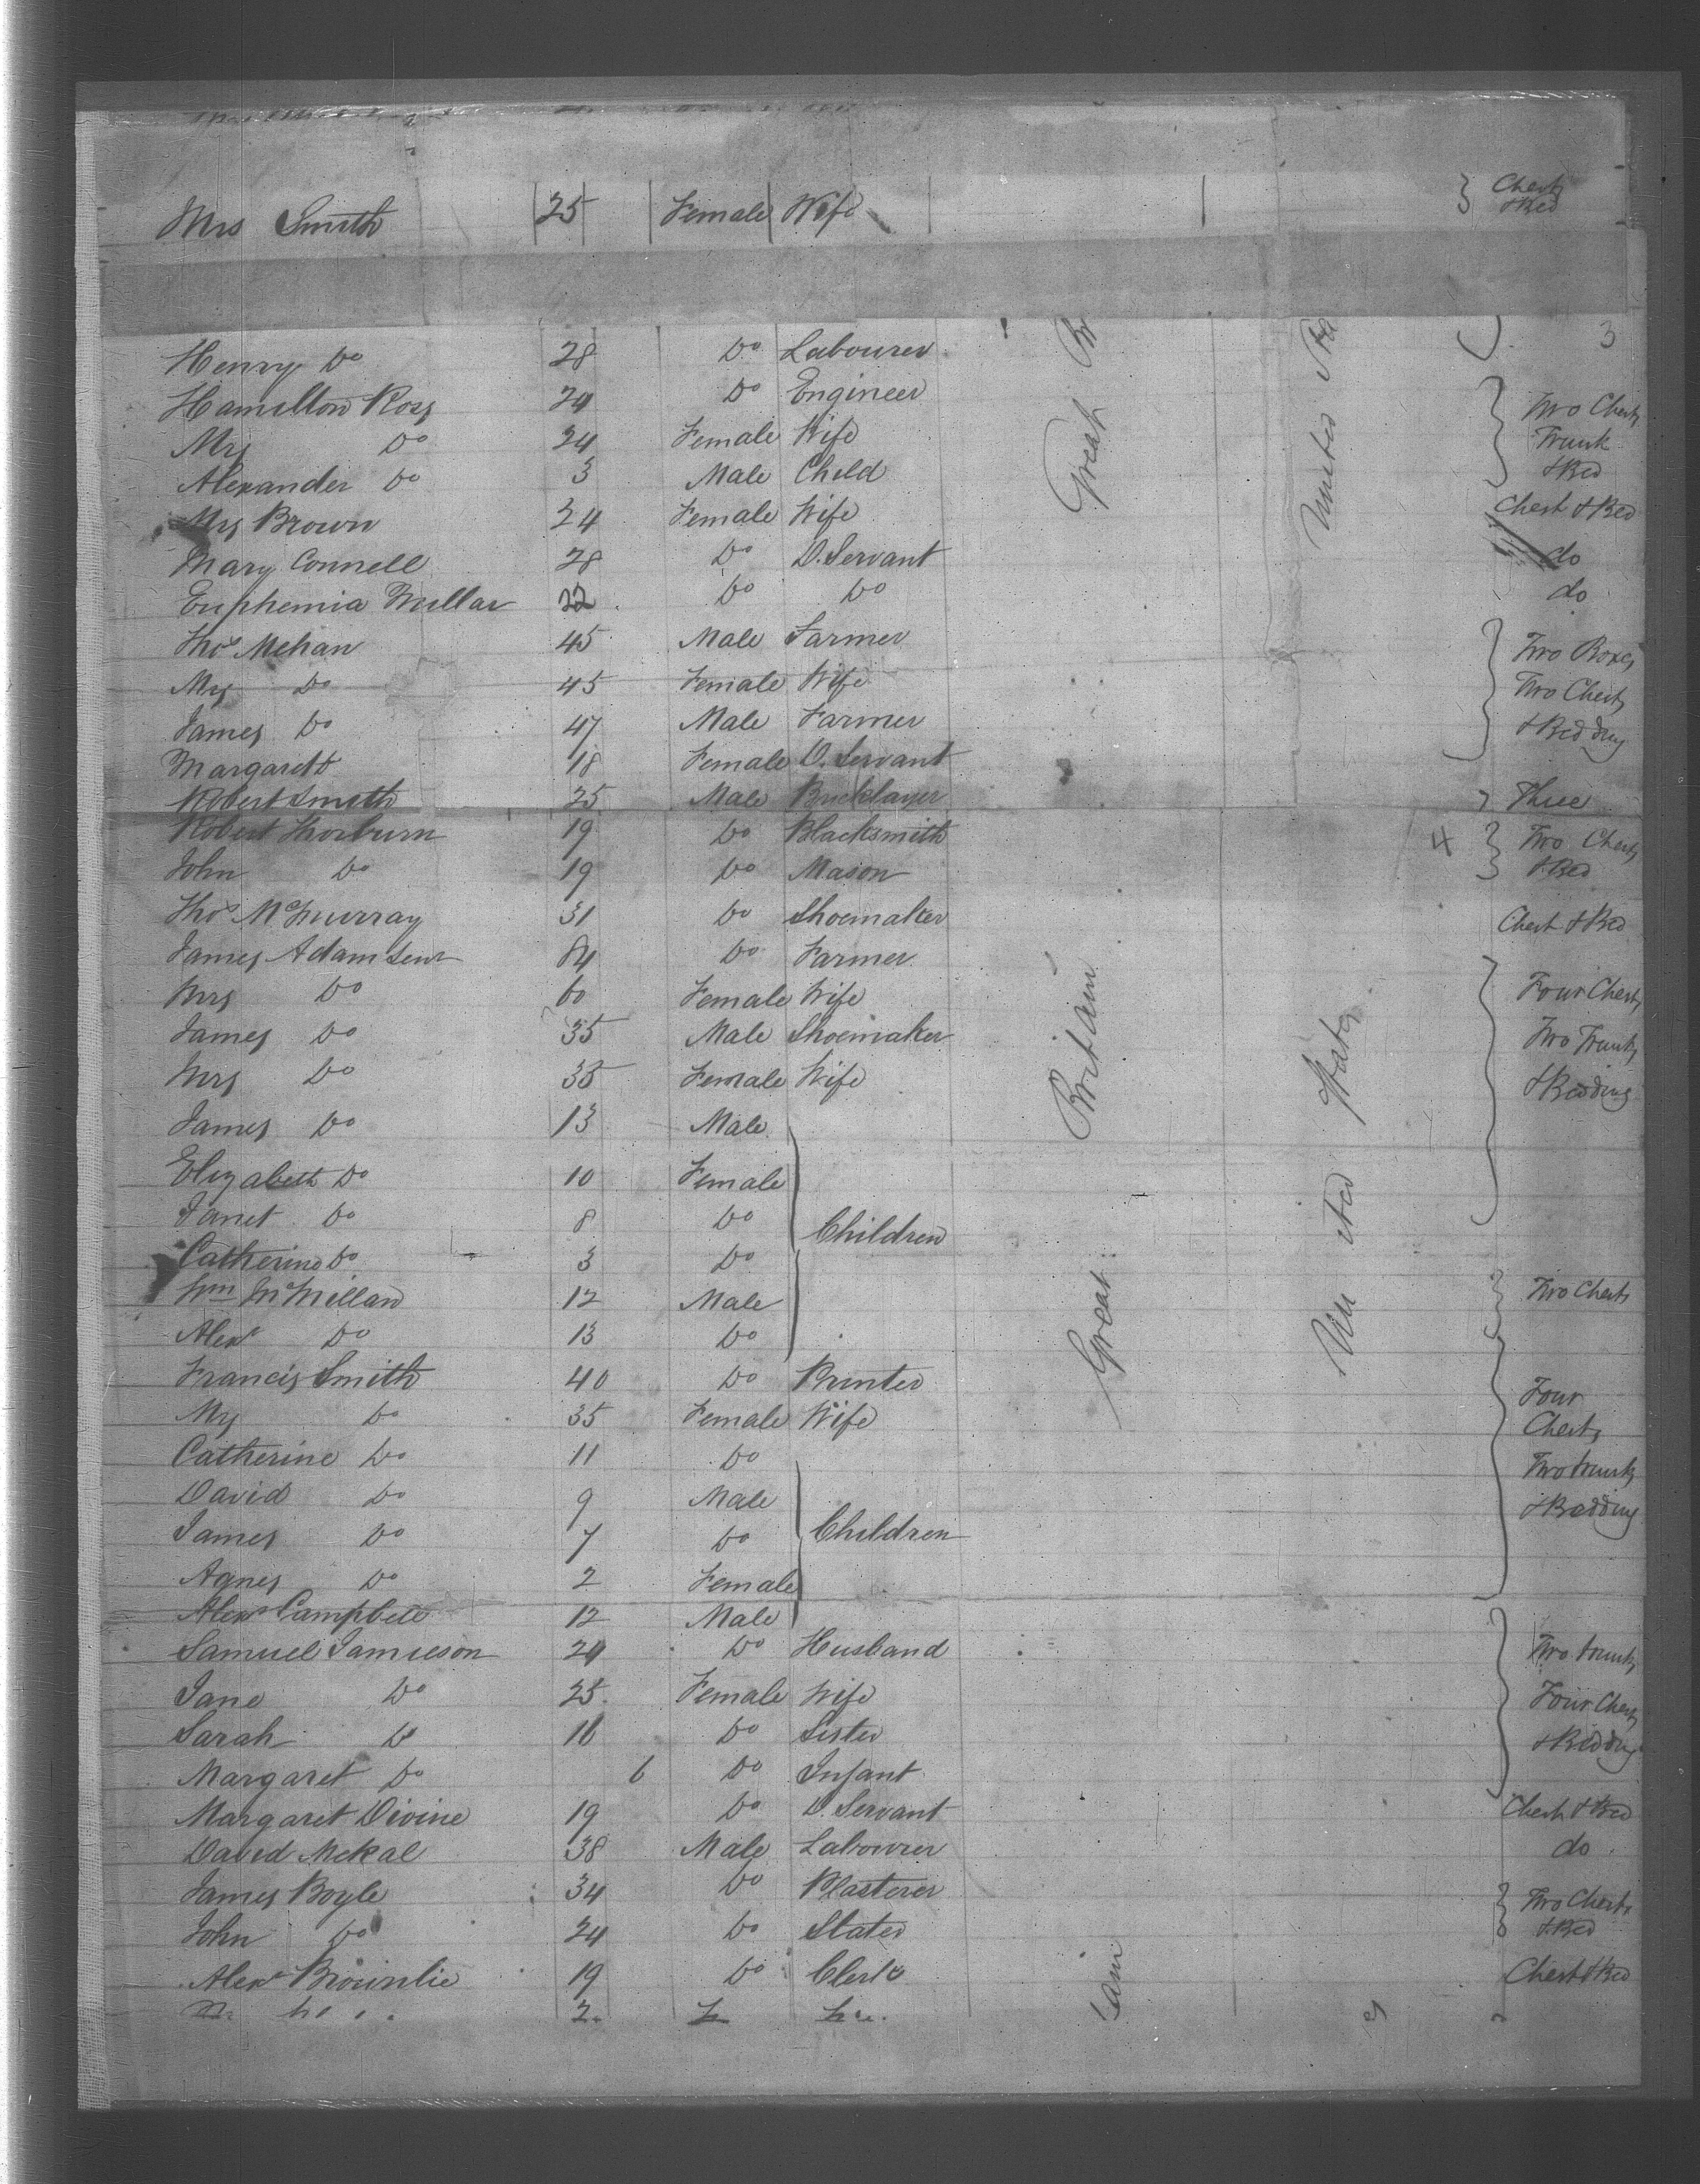 Mrs Smith 25 Female Wife Chests & Bed
Henry Do 28 Do Labourer 3
Hamilton Ross 24 Do Engineer Two Chests
Mrs Do 24 Female Wife Trunk
Alexander Do 3 Male Child & Bed
Mrs Brown 24 Female Wife Chest & Bed
Mary Connell 28 Do D. Servant do
Euphemia Millar 22 Do Do do
Thos Mehan 45 Male Farmer Two Boxes
Mrs Do 45 Female Wife Two Chests
James Do 47 Male Farmer & Bedding
Margarett 18 Female D. Servant
Robert Smith 25 Male Bricklayer Three
Robert Thorburn 19 Do Blacksmith 4 Two Chests
John Do 19 Do Mason & Bed
Thos McMurray 31 Do Shoemaker Chest & Bed
James Adam Senr 84 Do Farmer
Mrs Do 60 Female Wife Four Chests
James Do 35 Male Shoemaker Two Trunks
Mrs Do 35 Female Wife & Bedding
James Do 13 Male
Elizabeth Do 10 Female
Janet Do 8 Do Children
Catherine Do 3 Do
Wm McMillan 12 Male Two Chests
Alexr Do 13 Do
Francis Smith 40 Do Printer Four
Mrs Do 35 Female Wife Chests
Catherine Do 11 Do Two trunks
David Do 9 Male & Bedding
James Do 7 Do Children
Agnes Do 2 Female
Alexr Campbell 12 Male
Samuel Jamieson 24 Do Husband Two trunks
Jane Do 25 Female Wife Four Chests
Sarah Do 16 Do Sister & Bedding
Margaret Do 6 Do Infant
Margaret Divine 19 Do D. Servant Chest & Bed
David McKal 38 Male Labourer do
James Boyle 34 Do Plasterer Two Chests
John Do 24 Do Slater & Bed
Alexr Brownlie 19 Do Clerk Chest & Bed
Great Britain
United States
Great